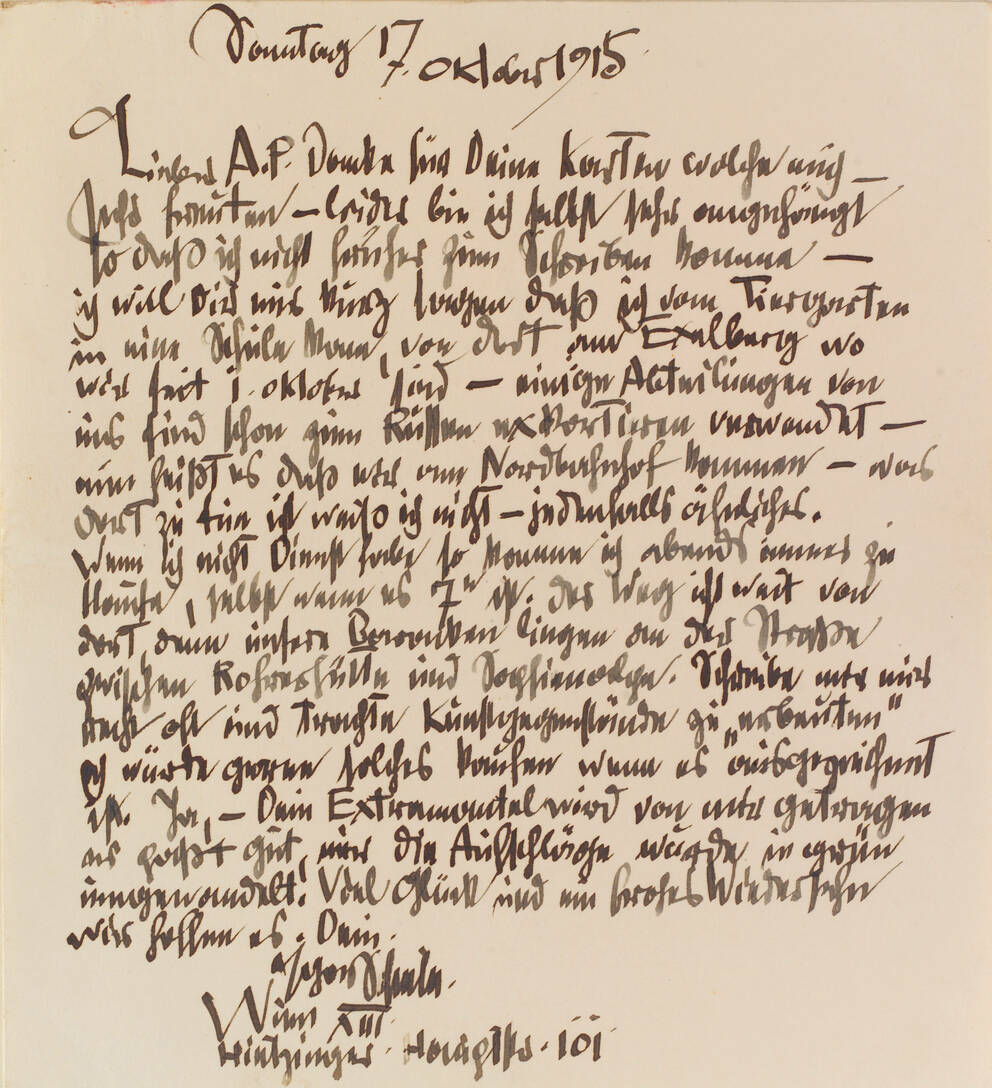 Sonntag 17. Oktober 1915
Lieber A. P. Danke für Deine Karten welche mich –
sehr freuten – leider bin ich selbst sehr angehängt
so daß ich nicht früher zum Schreiben komme –
ich will Dir nur kurz sagen daß ich vom Tiergarten
in eine Schule kam, von dort am Exelberg wo
wir seit 1. Oktober sind – einige Abteilungen von
uns sind schon zum Russen exkortieren verwendet –
nun heißt es daß wir am Nordbahnhof kommen – was
dort zu tun ist weiß ich nicht – jedenfalls ähnliches.
Wenn ich nicht Dienst habe so komme ich abends immer zu
Hause, selbst wenn es 7h ist. der Weg ist weit von
dort, denn unsere Baracken liegen an der Straße
zwischen Rohrerhütte und Sophienalpe. Schreibe mir nur
recht oft und trachte Kunstgegenstände zu „erbeuten“
ich würde gerne solches kaufen wenn es "ausgezeichnet
ist. Ja, – Dein Extramantel wird von mir getragen
es paßt gut, nur die Aufschläge wurden in grün
umgewandelt. Viel Glück und ein frohes Wiedersehn
wir hoffen es. Dein.
Egon Schiele.
Wien XIII.
Hietzinger. Hauptstr. 101